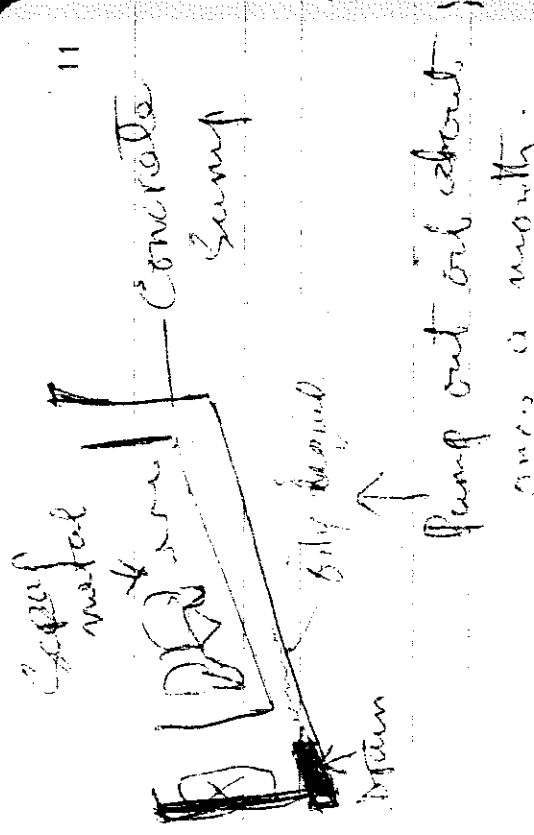 11
Scrap
metal
Concrete
Sump
Oily liquid
Drain
Pump out oil about
once a month.